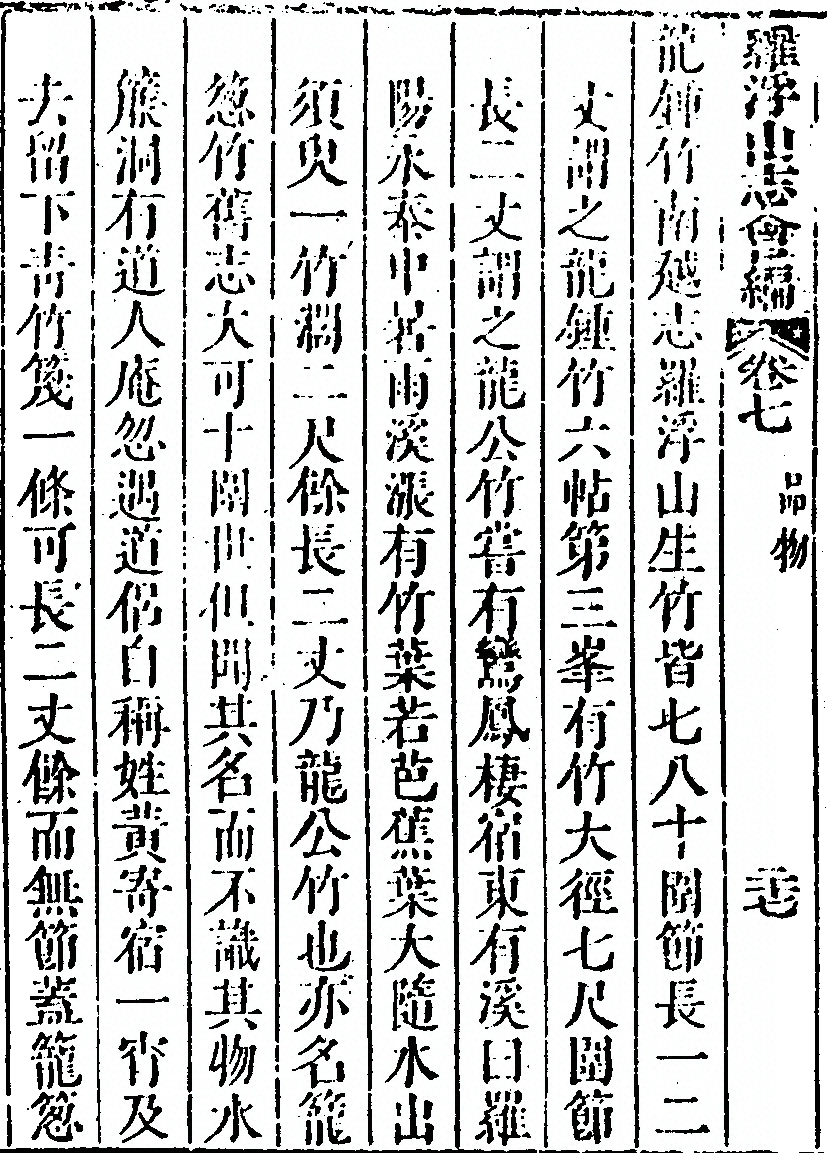 羅浮山志會編 卷七 品物 壱
龍鍾竹南越志羅浮山生竹皆七八十圍節長一二
丈謂之龍鍾竹六帖第三峯有竹大徑七尺圍節
長二丈謂之龍公竹嘗有鸞鳳棲宿東有溪曰羅
陽永泰中暑雨溪漲有竹葉若芭蕉葉大隨水出
須臾一竹濶二尺餘長二丈乃龍公竹也亦名籠
葱竹舊志大可十圍世但聞其名而不識其物水
簾洞有道人庵忽遇道侶自稱姓黃寄宿一宵及
去留下青竹篾一條可長二丈餘而無節蓋籠葱